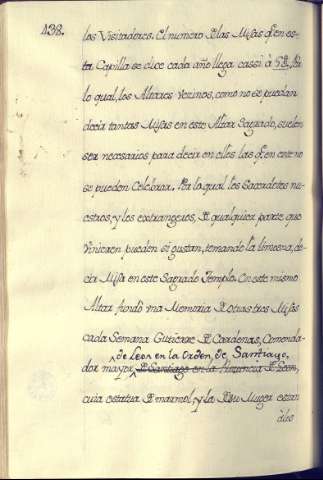 438.
los Visitadores. El numero de las Misas q̃ en es-
ta Capilla se dice cada año llega cassi à 5@. Por
lo qual, los Altares vezinos, como no se puedan
decir tantas Misas en este Altar Sagrado, suelen
ser necesarios para decir en ellos las q̃ en este no
se pueden Celebrar. Por lo qual los Sacerdotes nu-
estros, y los extrangeros, de qualquier parte que
vinieren pueden si gustan, tomando la limosna, de-
cir Misa en este Sagrado Templo. En este mismo
Altar fundó vna Memoria de otras tres Misas
cada Semana Gutierre de Cardenas, Comenda-
de Leon en la Orden, de Santiago,
dor mayor de Santiago en la Provincia de Leon,
cuia estatua de marmol, y la de su Muger estan